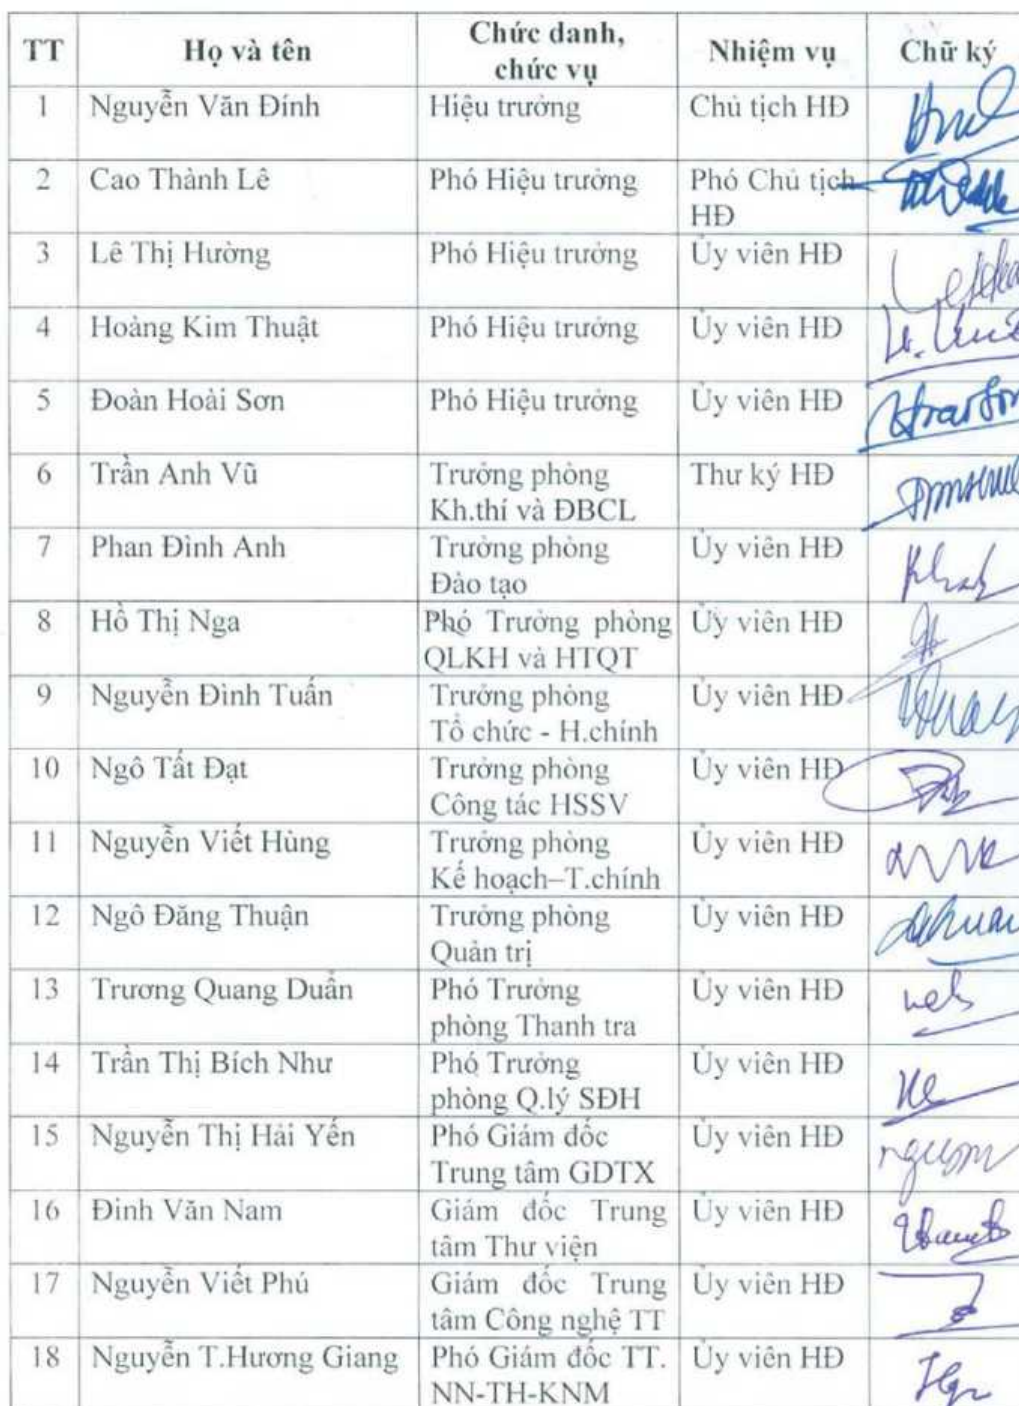 TT Họ và tên Chức danh, chức vụ Nhiệm vụ Chữ ký
1 Nguyễn Văn Đính Hiệu trưởng Chủ tịch HĐ
2 Cao Thành Lê Phó Hiệu trưởng Phó Chủ tịch HĐ
3 Lê Thị Hường Phó Hiệu trưởng Ủy viên HĐ
4 Hoàng Kim Thuật Phó Hiệu trưởng Ủy viên HĐ
5 Đoàn Hoài Sơn Phó Hiệu trưởng Ủy viên HĐ
6 Trần Anh Vũ Trưởng phòng Kh.thí và ĐBCL Thư ký HĐ
7 Phan Đình Anh Trưởng phòng Đào tạo Ủy viên HĐ
8 Hồ Thị Nga Phó Trưởng phòng QLKH và HTQT Ủy viên HĐ
9 Nguyễn Đình Tuấn Trưởng phòng Tổ chức - H.chính Ủy viên HĐ
10 Ngô Tất Đạt Trưởng phòng Công tác HSSV Ủy viên HĐ
11 Nguyễn Viết Hùng Trưởng phòng Kế hoạch–T.chính Ủy viên HĐ
12 Ngô Đăng Thuận Trưởng phòng Quản trị Ủy viên HĐ
13 Trương Quang Duẩn Phó Trưởng phòng Thanh tra Ủy viên HĐ
14 Trần Thị Bích Như Phó Trưởng phòng Q.lý SĐH Ủy viên HĐ
15 Nguyễn Thị Hải Yến Phó Giám đốc Trung tâm GDTX Ủy viên HĐ
16 Đinh Văn Nam Giám đốc Trung tâm Thư viện Ủy viên HĐ
17 Nguyễn Viết Phú Giám đốc Trung tâm Công nghệ TT Ủy viên HĐ
18 Nguyễn T.Hương Giang Phó Giám đốc TT. NN-TH-KNM Ủy viên HĐ